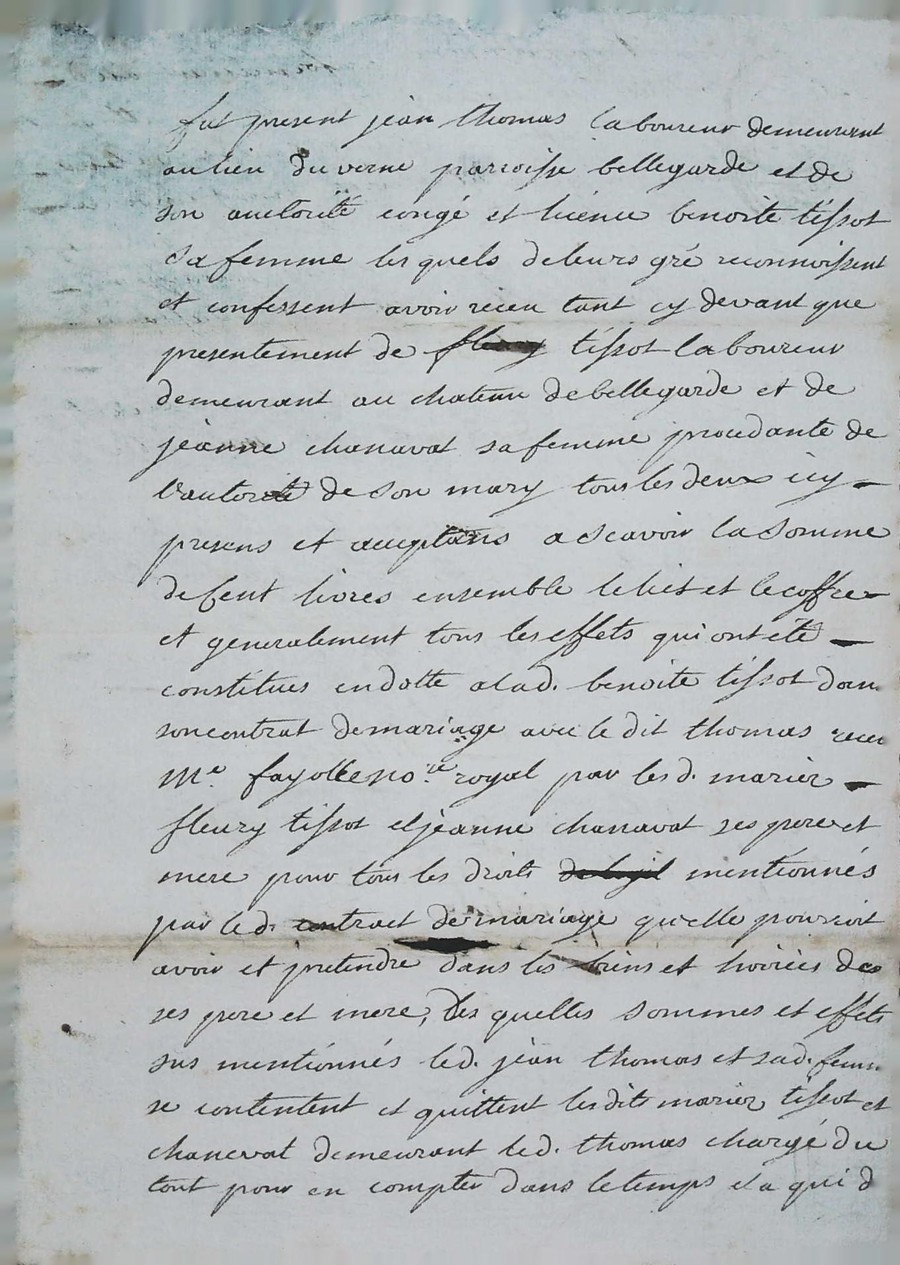 fut present jean thomas laboureur demeurant
au lieu du verne parroisse bellegarde et de
son auctorité congé et licence benoite tissot
sa femme les quels de leurs gré reconnoissent
et confessent avoir receu tant cy devant que
presentement de fleury tissot laboureur
demeurant au chateau de bellegarde et de
jeanne chanavat sa femme procedante de
l'autorité de son mary tous les deux icy
presens et acceptans a scavoir la somme
de cent livres ensemble le lict et le coffre
et generalement tous les effets qui ont été
constitues en dotte a lad. benoite tissot dan
son contrat de mariage avec le dit thomas receu
Me. fayolle no.re royal par les d. mariez
fleury tissot et jeanne chanavat ses pere et
mere pour tous les droits mentionnés
par le d. contract de mariage qu'elle pourroit
avoir et pretendre dans les biens et hoiries des
ses pere et mere, des quelles sommes et effets
sus mentionnés led. jean thomas et sad. femm
se contentent et quittent les dits mariez tissot et
chanevat demeurant led. thomas chargé du
tout pour en compter dans le temps et a qui d